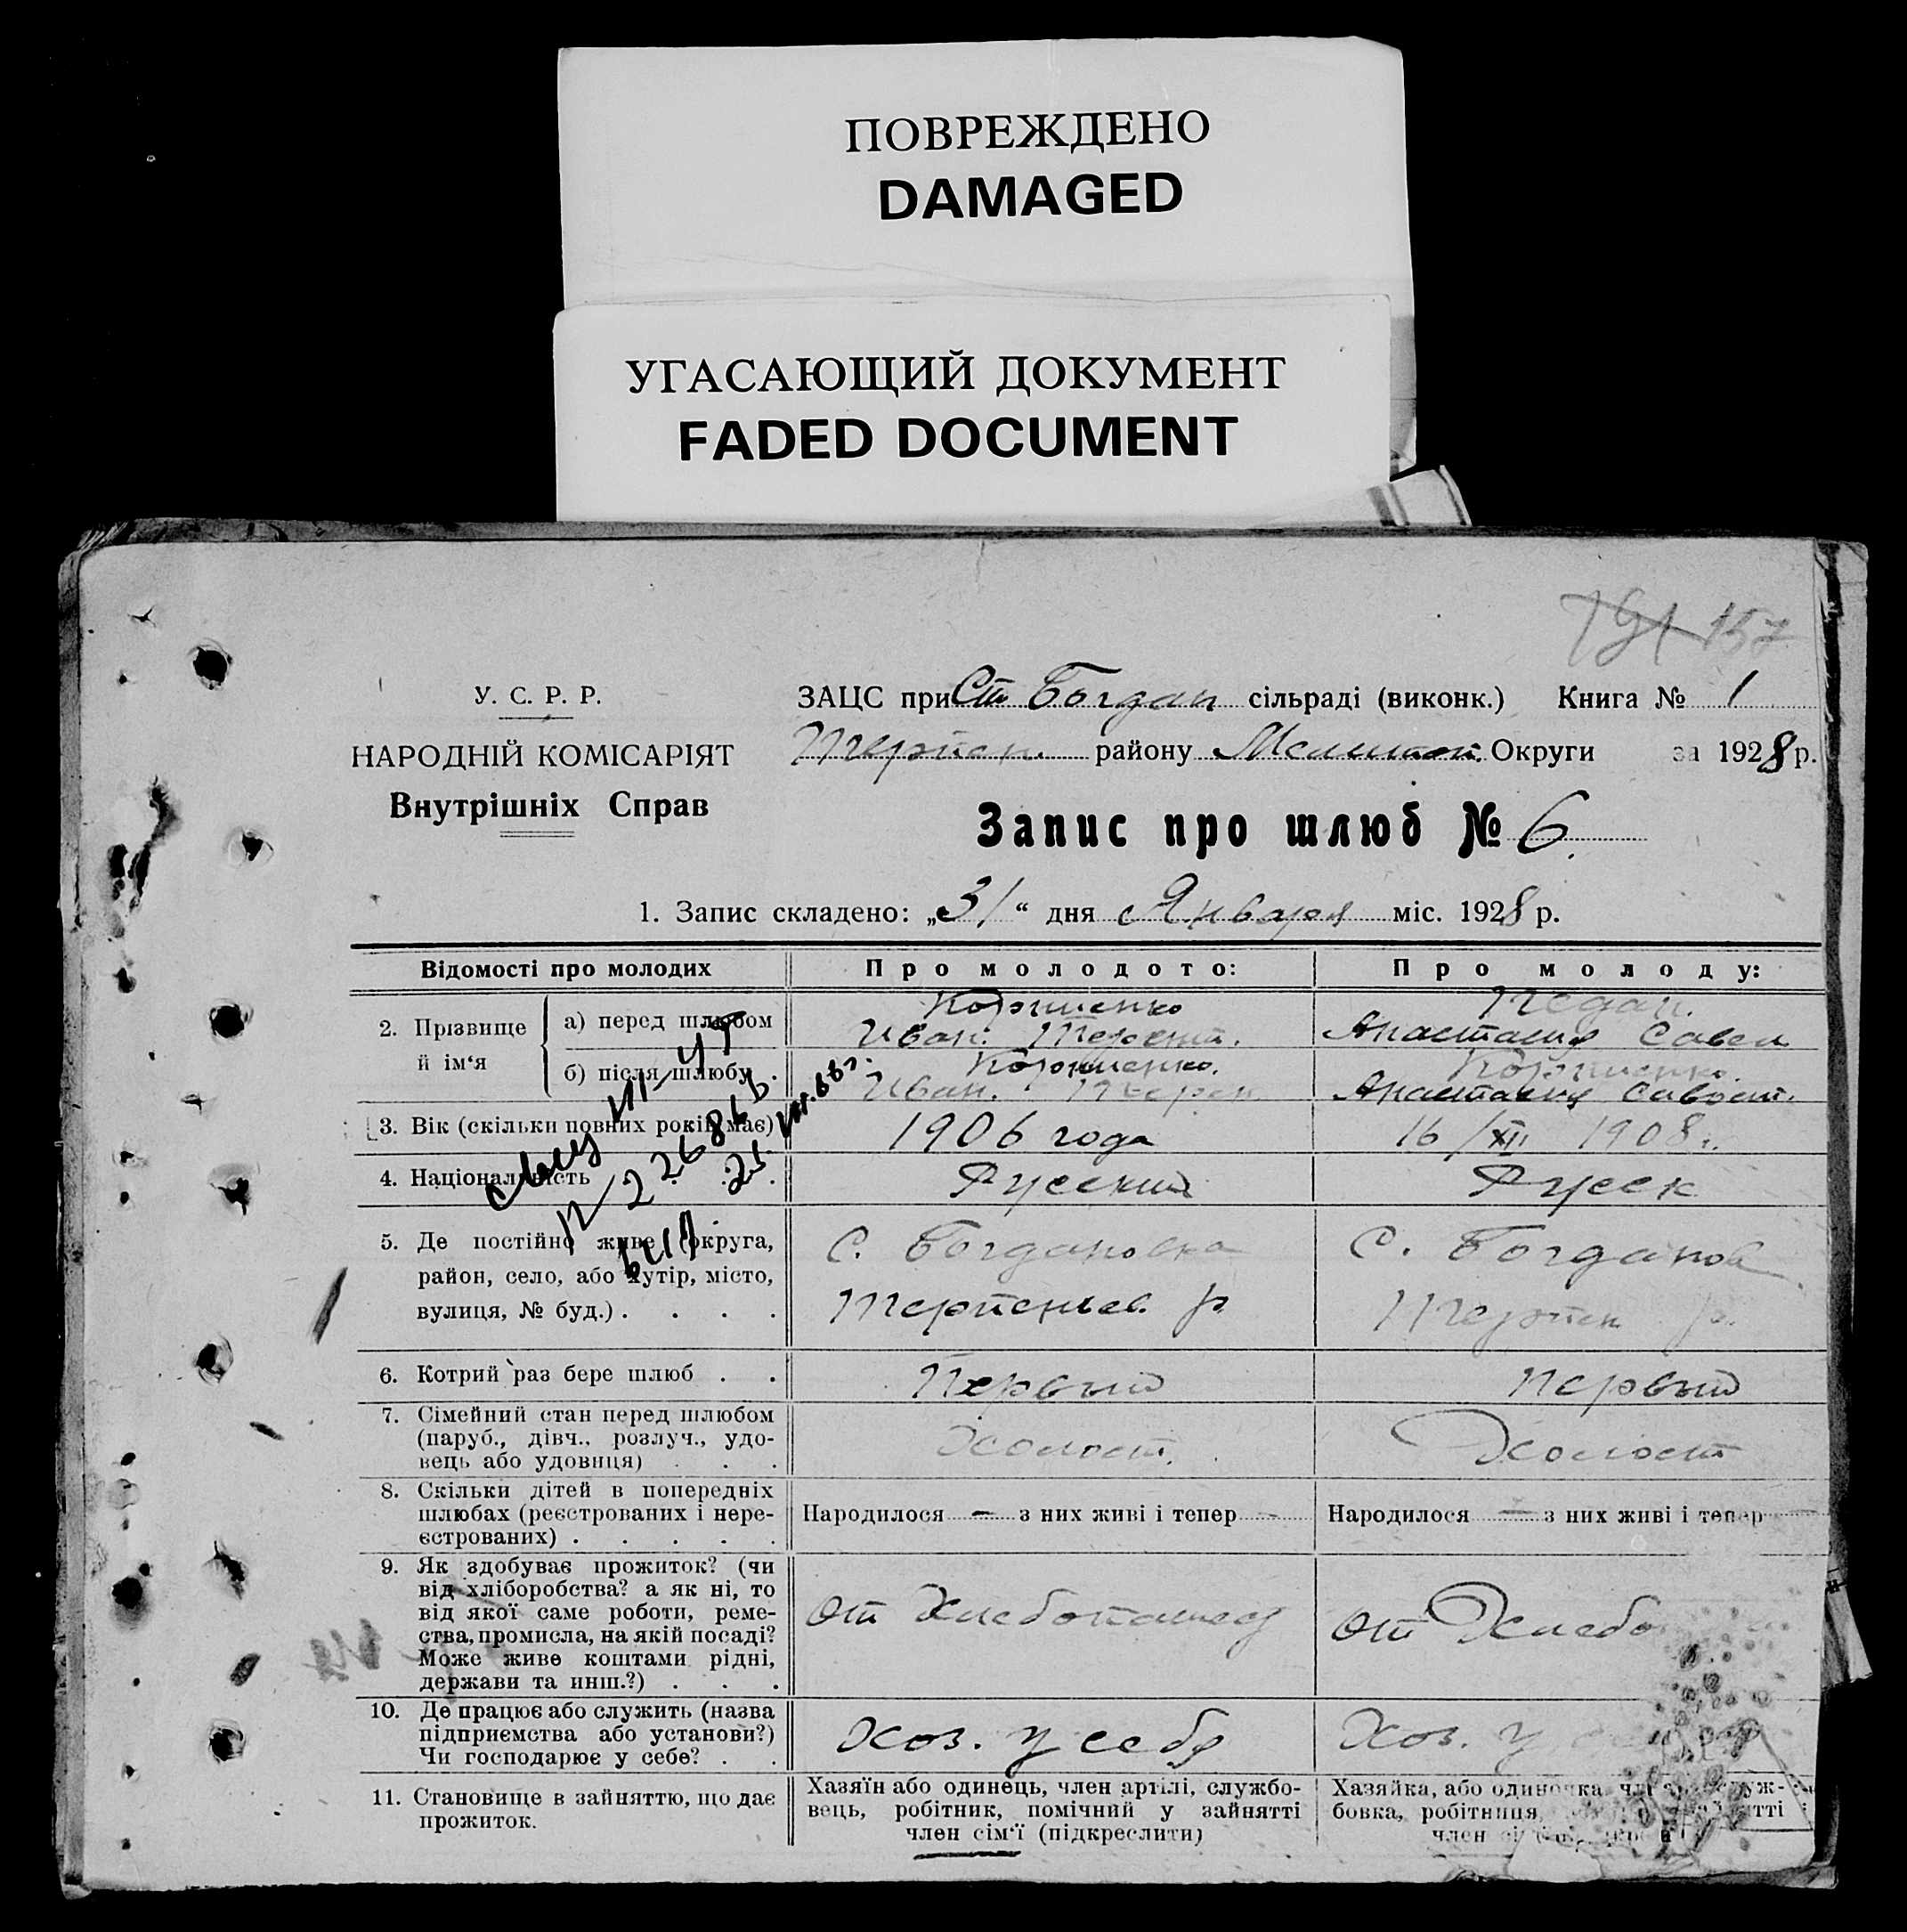 ПОВРЕЖДЕНО
DAMAGED
УГАСАЮЩИЙ ДОКУМЕНТ
FADED DOCUMENT
191 157
У. С. Р. Р.
НАРОДНІЙ КОМІСАРІЯТ
Внутрішніх Справ
ЗАЦС при Ст Богдан сільраді (виконк.) Книга № 1
Терпен. району Мелитоп. Округи за 1928 р.
Запис про шлюб № 6.
1. Запис складено: „31“ дня Января міс. 1928 р.
Відомості про молодих
Про молодого:
Про молоду:
2. Прізвище й ім‘я
а) перед шлюбом
Иван.
Анастасия Савел
б) після шлюбу .
Иван.
Анастасия
3. Вік (скільки повних років має)
1906 года
16/XII 1908 г.
4. Національність
Русский
Русск
5. Де постійно живе (округа,
район, село, або хутір, місто,
вулиця, № буд.) . . . .
С. Богдановка
Терпеньев. р.
С. Богданов
Терпен р.
6. Котрий раз бере шлюб . .
Первый
Первый
7. Сімейний стан перед шлюбом
(паруб., дівч., розлуч., удо-
вець або удовиця) . . .
Холост.
Холост
8. Скільки дітей в попередніх
шлюбах (реєстрованих і нере-
єстрованих) . . . . .
Народилося — з них живі і тепер —
Народилося — з них живі і тепер —
9. Як здобуває прожиток? (чи
від хліборобства? а як ні, то
від якої саме роботи, реме-
ства, промисла, на якій посаді?
Може живе коштами рідні,
держави та инш.?) . . .
От Хлебопашест
От Хлебо
10. Де працює або служить (назва
підприємства або установи?)
Чи господарює у себе? . .
Хоз. у себя
Хоз. у
11. Становище в зайняттю, що дає
прожиток.
Хазяїн або одинець, член артілі, службо-
вець, робітник, помічний у зайнятті
член сім‘ї (підкреслити)
Хазяйка, або одиночка, служ-
бовка, робітниця,
член